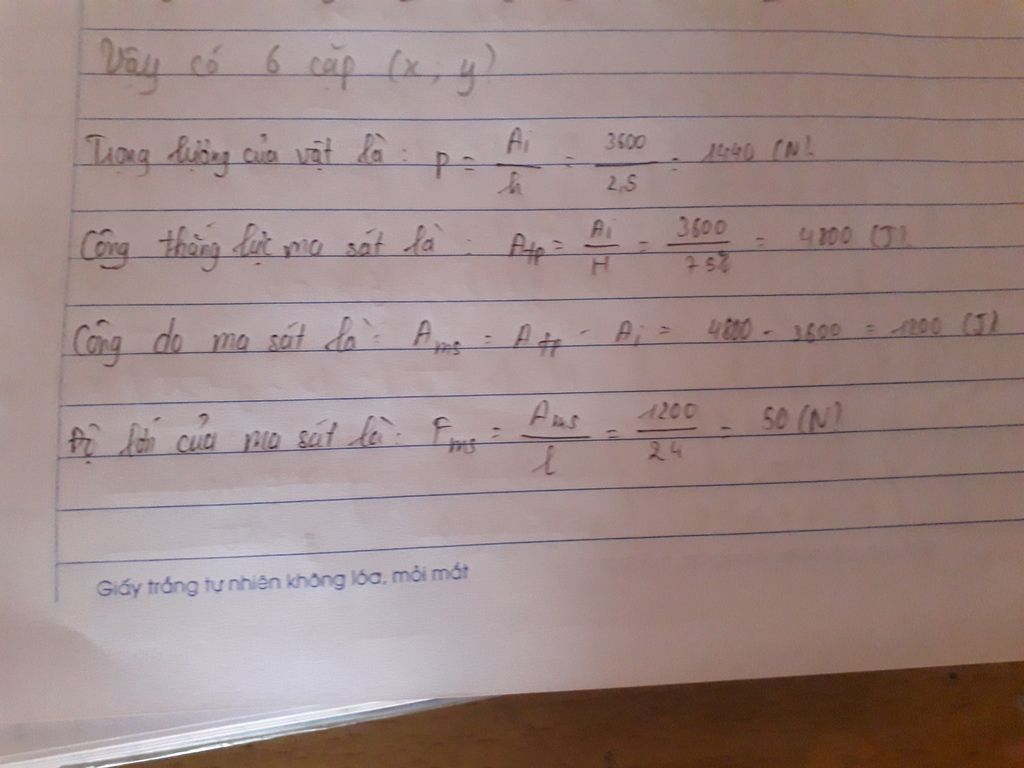 Vậy có 6 cặp (x; y)
Trọng lượng của vật là: P = Ai / h = 3600 / 2,5 = 1440 (N).
Công thắng lực ma sát là: Atp = Ai / H = 3600 / 75% = 4800 (J).
Công do ma sát là: Ams = Atp - Ai = 4800 - 3600 = 1200 (J)
Độ lớn của ma sát là: Fms = Ams / l = 1200 / 24 = 50 (N)
Giấy trắng tự nhiên không lóa, mỏi mắt